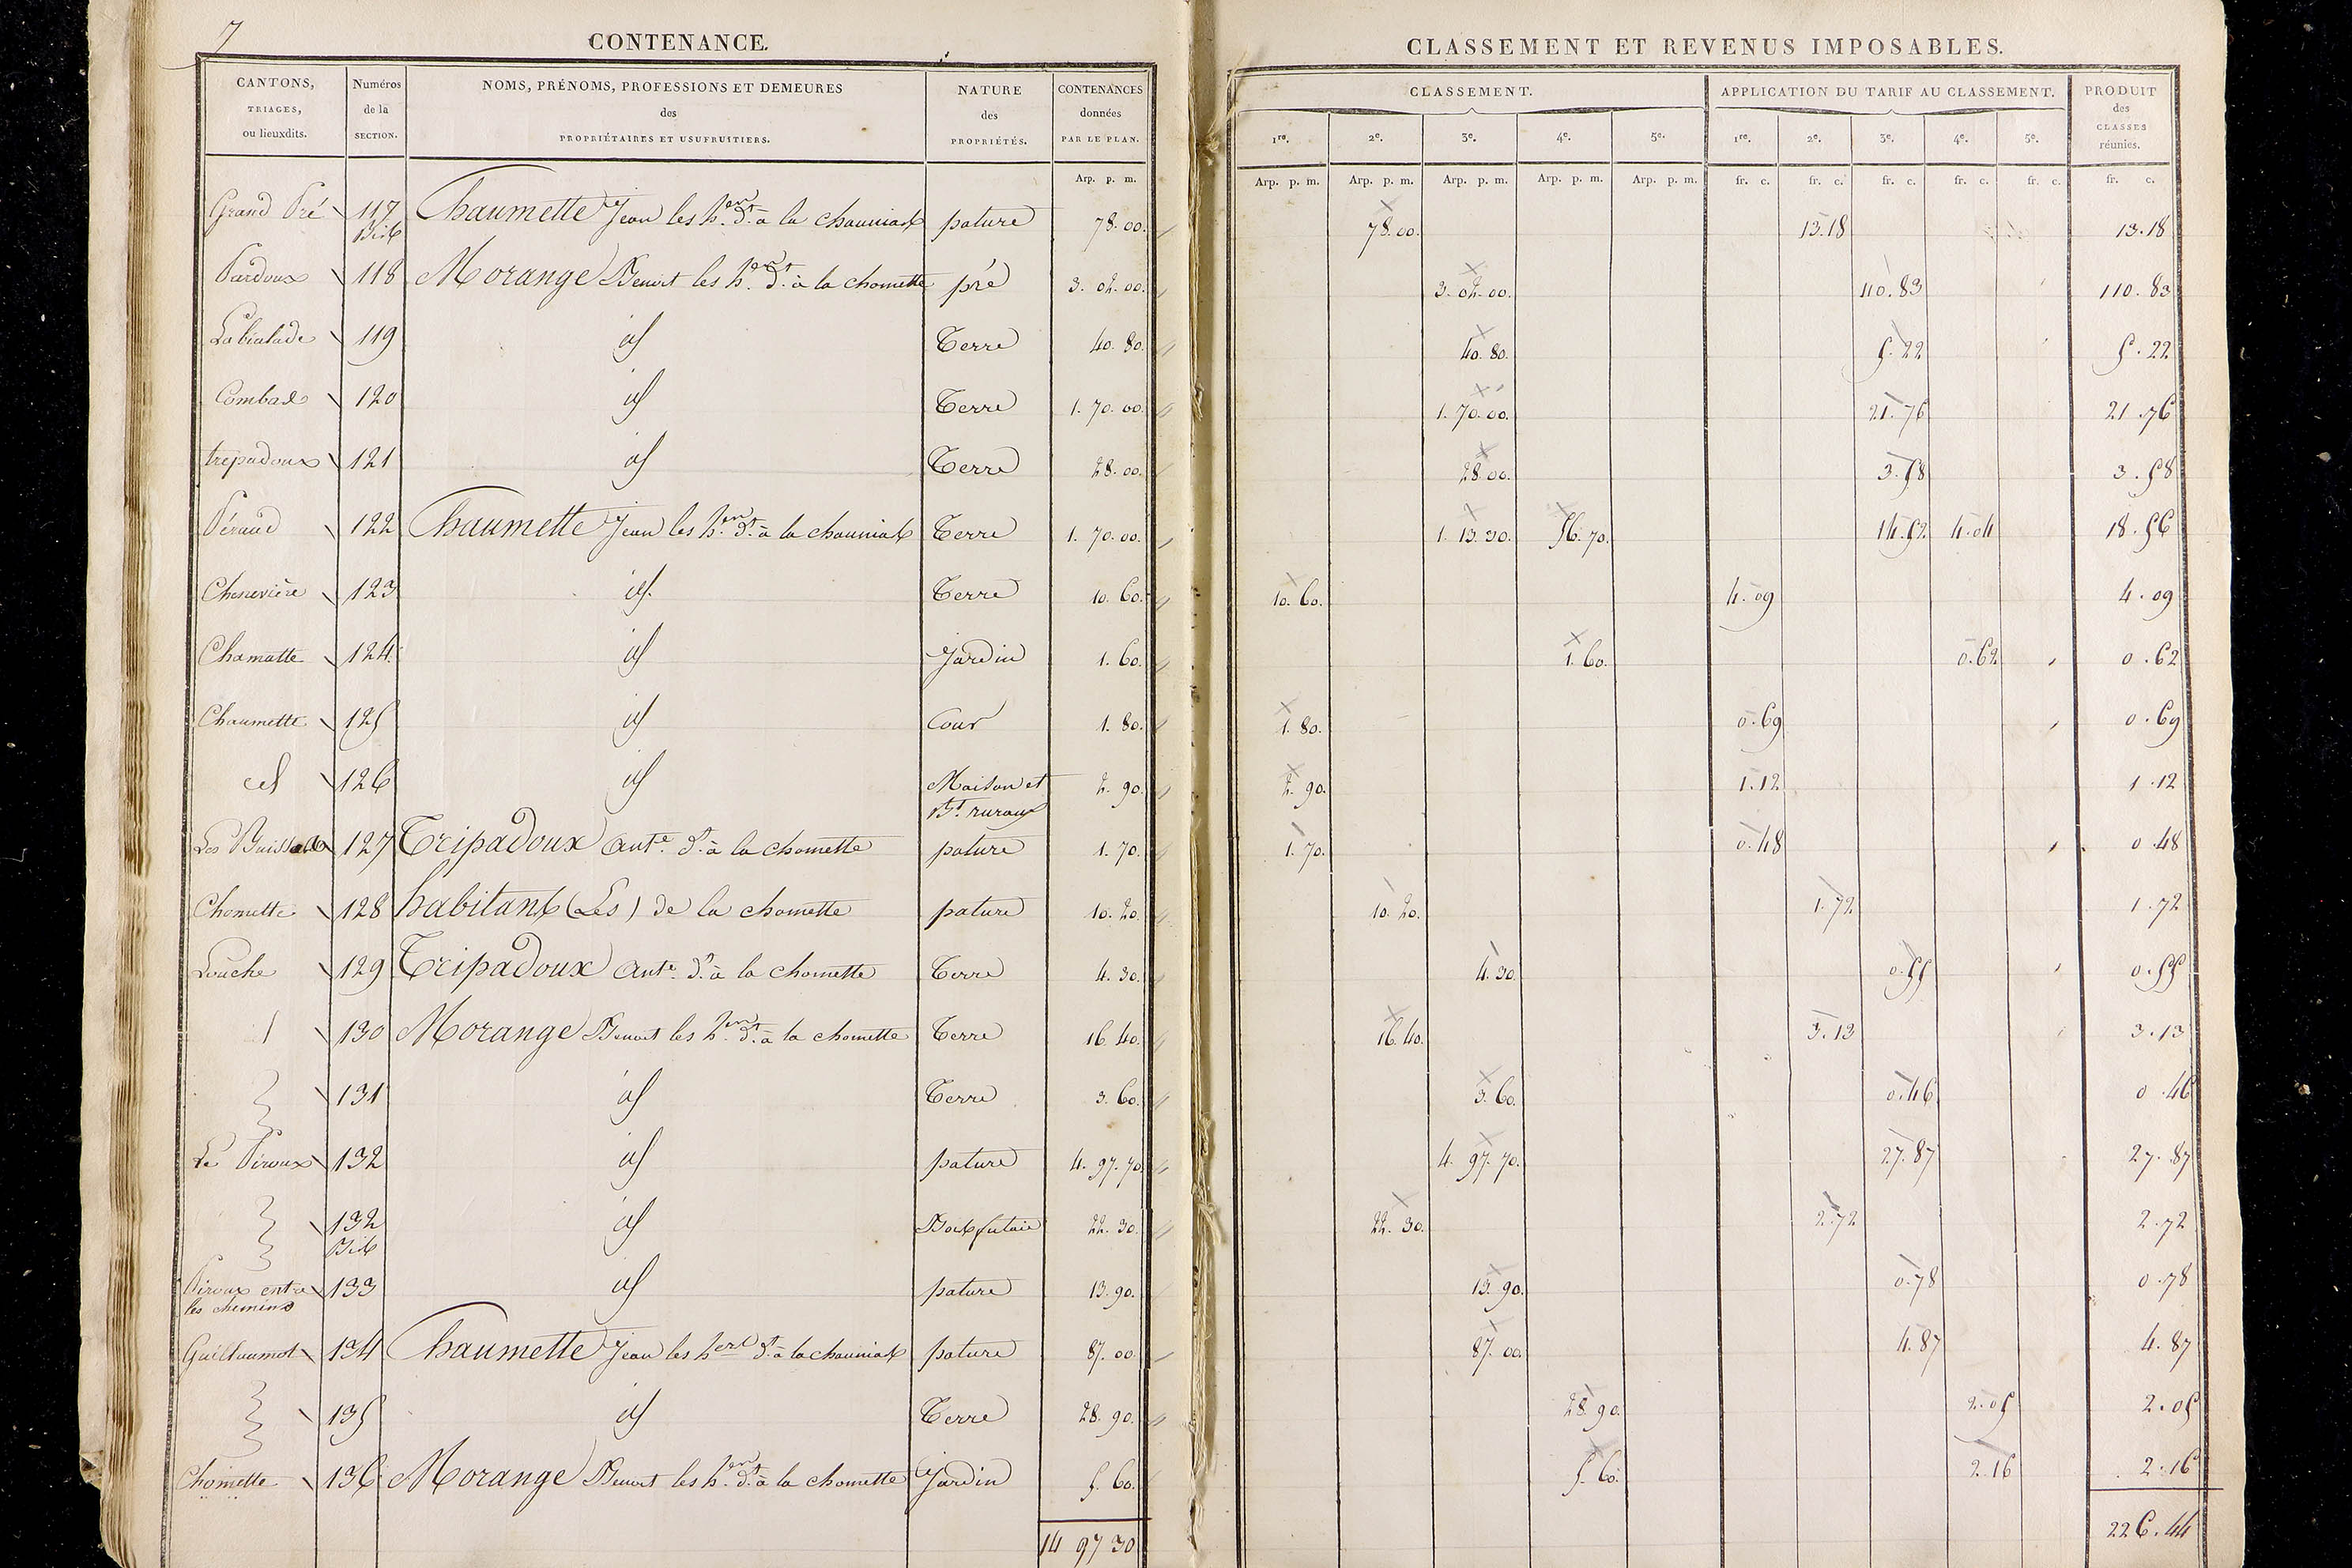 7
CONTENANCE.
CANTONS, TRIAGES, ou lieuxdits. Numéros de la SECTION. NOMS, PRÉNOMS, PROFESSIONS ET DEMEURES des PROPRIÉTAIRES ET USUFRUITIERS. NATURE des PROPRIÉTÉS. CONTENANCES données PAR LE PLAN.
Arp. p. m.
CLASSEMENT ET REVENUS IMPOSABLES.
CLASSEMENT. APPLICATION DU TARIF AU CLASSEMENT. PRODUIT des CLASSES réunies.
1re. 2e. 3e. 4e. 5e. 1re. 2e. 3e. 4e. 5e.
Arp. p. m. Arp. p. m. Arp. p. m. Arp. p. m. Arp. p. m. fr. c. fr. c. fr. c. fr. c. fr. c. fr. c.
Grand Pré 117 Bis Chaumette Jean les hers dt. à la chauniat pature 78. 00. 78. 00. 13.18 13.18
Pardoux 118 Morange Benoit les hers dt. à la chomette pré 3. 02. 00. 3. 02. 00. 110. 83 110. 83
119 id Terre 40. 80. 40. 80. 5. 22 5. 22
Combas 120 id Terre 1. 70. 00. 1. 70. 00. 21. 76 21. 76
trepadoux 121 id Terre 28. 00. 28. 00. 3. 58 3. 58
Péraud 122 Chaumette Jean les hers dt. à la chauniat Terre 1. 70. 00. 1. 13. 30. 56. 70. 14. 52 4. 04 18. 56
Chenevière 123 id. Terre 10. 60. 10. 60. 4. 09 4. 09
Chamatte 124 id Jardin 1. 60. 1. 60. 0. 62 0. 62
Chaumette 125 id Cour 1. 80. 1. 80. 0. 69 0. 69
id 126 id Maison et Bt. ruraux 2. 90. 2. 90. 1. 12 1. 12
Les 127 Tripadoux Ante. dt. à la chomette pature 1. 70. 1. 70. 0. 48 0. 48
Chomette 128 habitants (Les) de la chomette pature 10. 20. 10. 20. 1. 72 1. 72
Louche 129 Tripadoux Ante. dt. à la chomette Terre 4. 30. 4. 30. 0. 55 0. 55
130 Morange Benoit les hers dt. à la chomette Terre 16. 40. 16. 40. 3. 13 3. 13
131 id Terre 3. 60. 3. 60. 0. 46 0. 46
Le Piroux 132 id pature 4. 97. 70. 4. 97. 70. 27. 87 27. 87
132 Bis id Bois futaie 22. 30. 22. 30. 2. 72 2. 72
Piroux entre les chemins 133 id pature 13. 90. 13. 90. 0. 78 0. 78
Guillaumot 134 Chaumette Jean les hers dt. à la chauniat pature 87. 00 87. 00. 4. 87 4. 87
135 id Terre 28. 90. 28. 90. 2. 05 2. 05
Chomette 136 Morange Benoit les hers dt. à la chomette Jardin 5. 60. 5. 60. 2. 16 2. 16
14 97 30 226. 44